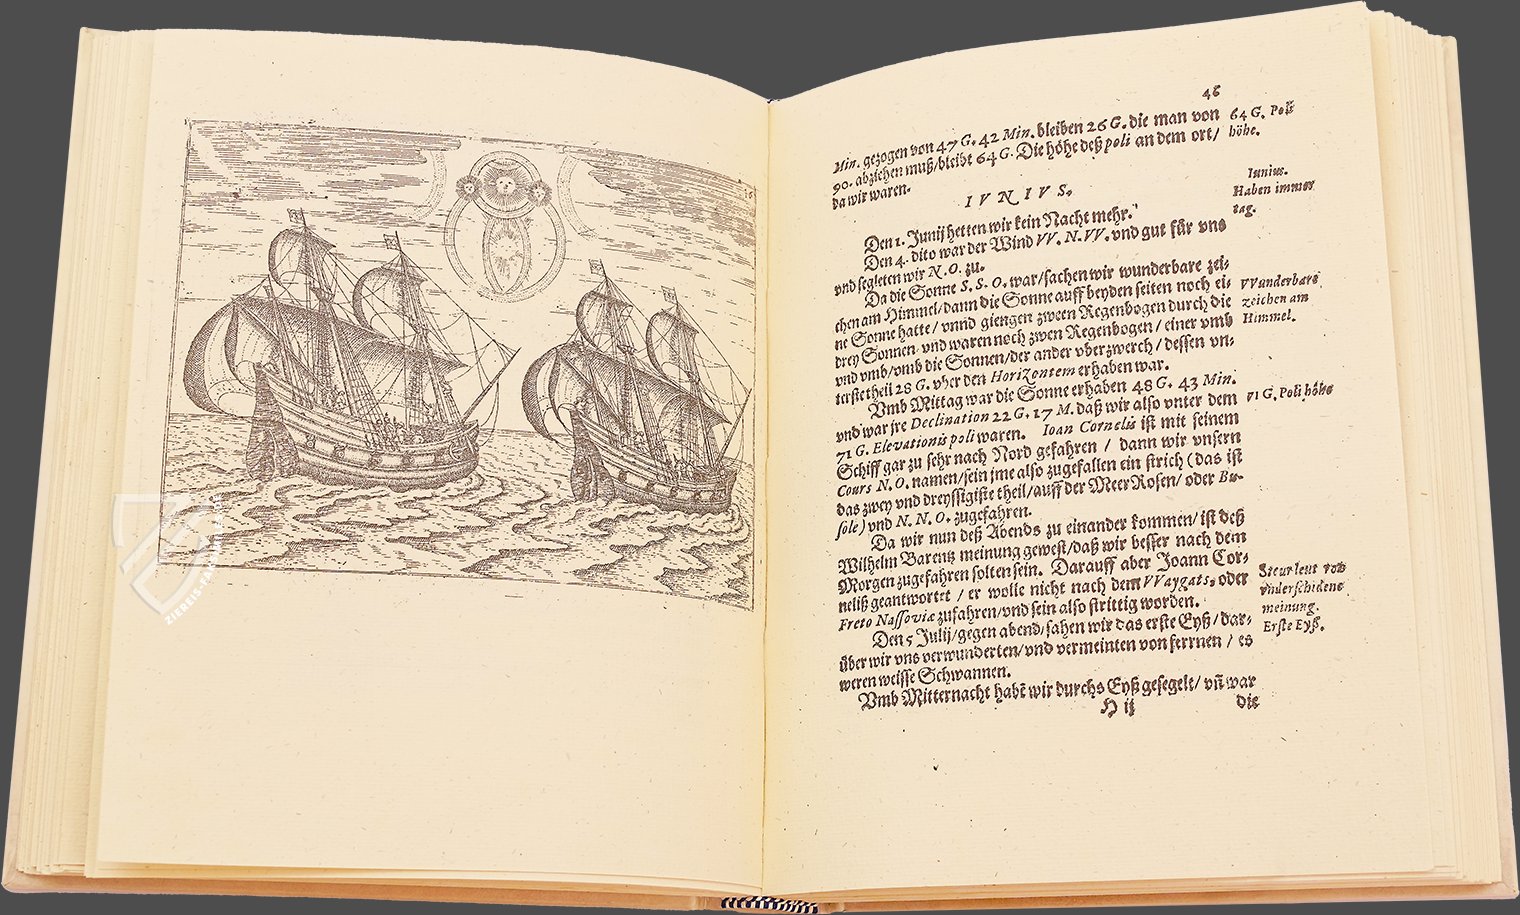 16
ZIEREIS
46
Min. gezogen von 47 G. 42 Min. bleiben 26 G. die man von
90. abziehen muß/bleibt 64 G. Die höhe deß poli an dem ort/
da wir waren.
64 G. Poli
höhe.
IVNIVS.
Iunius.
Haben immer
tag.
Den 1. Junij hetten wir kein Nacht mehr.
Den 4. dito war der Wind VV. N. VV. vnd gut für vns
vnd segleten wir N. O. zu.
Da die Sonne S. S. O. war/sachen wir wunderbare zei-
chen am Himmel/dann die Sonne auff beyden seiten noch ei-
ne Sonne hatte/ vnnd giengen zween Regenbogen durch die
drey Sonnen/ vnd waren noch zwen Regenbogen/ einer vmb
vnd vmb/vmb die Sonnen/der ander vberzwerch/ dessen vn-
terste theil 28 G. vber den Horizontem erhaben war.
VVunderbare
zeichen am
Himmel.
Vmb Mittag war die Sonne erhaben 48 G. 43 Min.
vnd war jre Declination 22 G. 17 M. daß wir also vnter dem
71 G. Elevationis poli waren. Ioan Cornelis ist mit seinem
Schiff gar zu sehr nach Nord gefahren / dann wir vnsern
Cours N. O. namen/sein jme also zugefallen ein strich (das ist
das zwey vnd dreyssigiste theil/auff der Meer Rosen/ oder Bu-
sole) vnd N. N. O. zugefahren.
71 G. Poli höhe
Da wir nun deß Abends zu einander kommen/ ist deß
Wilhelm Barentz meinung gewest/daß wir besser nach dem
Morgen zugefahren solten sein. Darauff aber Joann Cor-
neliß geantwortet / er wolle nicht nach dem VVaygats, oder
Freto Nassoviæ zufahren/vnd sein also strittig worden.
Steurleut von
vnderschidene
meinung.
Erste Eyß.
Den 5 Julij/gegen abend/sahen wir das erste Eyß/ dar-
über wir vns verwunderten/vnd vermeinten von ferrnen / es
weren weisse Schwannen.
Vmb Mitternacht habē wir durchs Eyß gesegelt/ vñ war
H ij
die